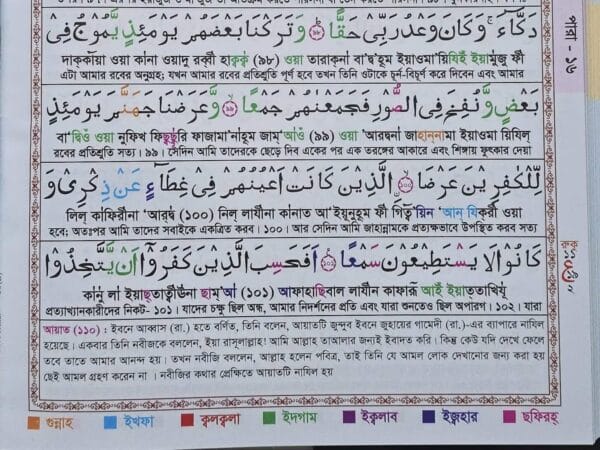 دَكَّآءَ ۚ وَكَانَ وَعْدُ رَبِّىْ حَقًّا ﴿٩٨﴾ وَتَرَكْنَا بَعْضَهُمْ يَوْمَئِذٍ يَّمُوْجُ فِىْ
দাক্কাইয়া ওয়া কানা ওয়াদু রব্বী হাক্ক্ব (৯৮) ওয়া তারাক্‌না বা'দ্বহূম ইয়াওমা'য়িযিই ইয়ামুজু ফী
এটা আমার রবের অনুগ্রহ; যখন আমার রবের প্রতিশ্রুতি পূর্ণ হবে তখন তিনি ওটাকে চূর্ন-বিচূর্ণ করে দিবেন এবং আমার
بَعْضٍ وَّنُفِخَ فِى الصُّوْرِ فَجَمَعْنٰهُمْ جَمْعًا ﴿٩٩﴾ وَّعَرَضْنَا جَهَنَّمَ يَوْمَئِذٍ
বা'দ্বিওঁ ওয়া নুফিখ ফিছ্ছূরি ফাজামা'নাহূম জাম্'আওঁ (৯৯) ওয়া 'আরদ্বনা জাহান্নামা ইয়াওমা য়িযিল্
রবের প্রতিশ্রুতি সত্য। ৯৯। সেদিন আমি তাদেরকে ছেড়ে দিব একের পর এক তরঙ্গের আকারে এবং শিঙ্গায় ফুৎকার দেয়া
لِّلْكٰفِرِيْنَ عَرْضَا ﴿١٠٠﴾ الَّذِيْنَ كَانَتْ اَعْيُنُهُمْ فِىْ غِطَآءٍ عَنْ ذِكْرِىْ وَ
লিল্ কাফিরীনা 'আরদ্ব (১০০) নিল্ লাযীনা কানাত আ'ইয়ুনুহূম ফী গিত্বয়িন 'আন্ যিকরী ওয়া
হবে; অতঃপর আমি তাদের সবাইকে একত্রিত করব। ১০০। আর সেদিন আমি জাহান্নামকে প্রত্যক্ষভাবে উপস্থিত করব সত্য
كَانُوْا لَا يَسْتَطِيْعُوْنَ سَمْعًا ﴿١٠١﴾ اَفَحَسِبَ الَّذِيْنَ كَفَرُوْٓا اَنْ يَّتَّخِذُوْا
কানূ লা ইয়াছ্তাত্বীঊনা ছাম্'আ (১০১) আফাহাছিবাল লাযীন কাফারূ আই ইয়াত্তাখিযূ
প্রত্যাখানকারীদের নিকট- ১০১। যাদের চক্ষু ছিল অন্ধ, আমার নিদর্শনের প্রতি এবং যারা শুনতেও ছিল অপারগ। ১০২। যারা
আয়াত (১১০) : ইবনে আব্বাস (রা.) হতে বর্ণিত, তিনি বলেন, আয়াতটি জুন্দুব ইবনে জুহায়ের গামেদী (রা.)-এর ব্যাপারে নাযিল
হয়েছে। একবার তিনি নবীজকে বললেন, ইয়া রাসূলাল্লাহ! আমি আল্লাহ তাআলার জন্যই ইবাদত করি। কিন্তু কেউ যদি দেখে ফেলে
তবে তাতে আমার আনন্দ হয়। তখন নবীজি বললেন, আল্লাহ হলেন পবিত্র, তাই তিনি যে আমল লোক দেখানোর জন্য করা হয়
ছেই আমল গ্রহণ করেন না । নবীজির কথার প্রেক্ষিতে আয়াতটি নাযিল হয়
পারা - ১৬
গুন্নাহ ইখফা ক্বলক্বলা ইদগাম ইক্বলাব ইজ্বহার ছফিরহ্